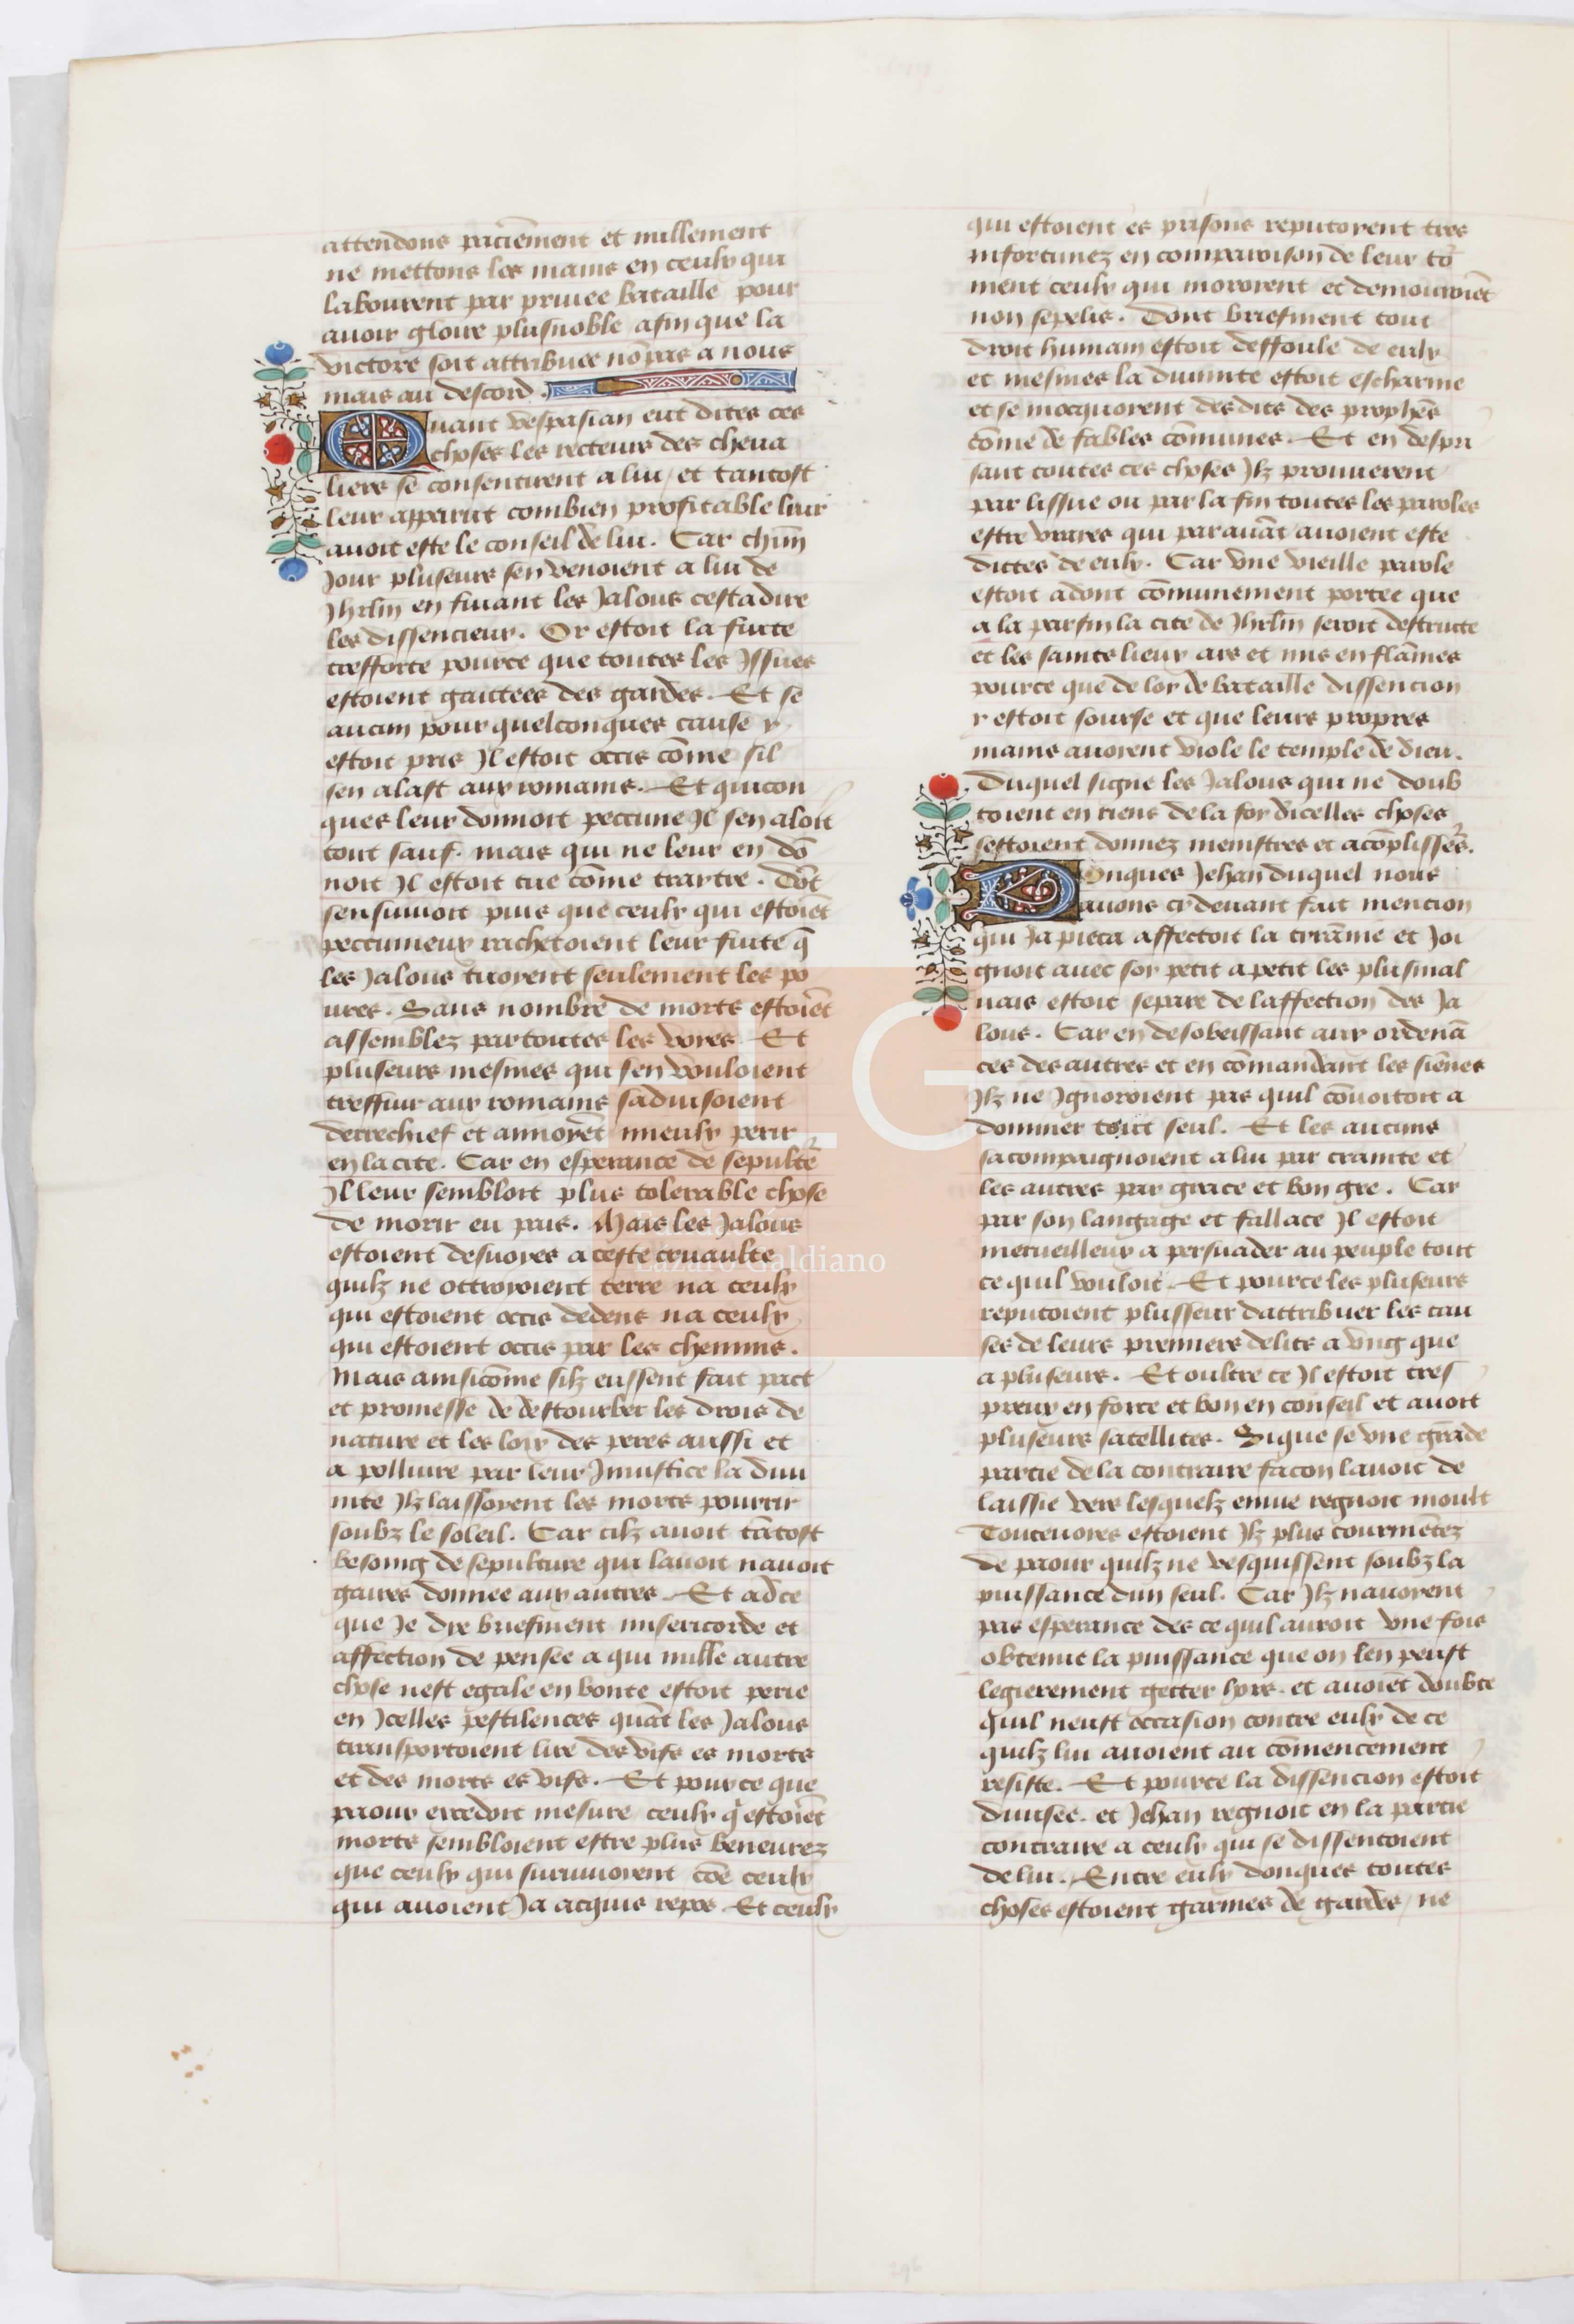 attendons paciēment et nullement
ne mettons les mains en ceulx qui
labourent par priuee bataille pour
auoir gloire plusnoble afin que la
victore soit attribuee nō pas a nous
mais au descord.
Quant vespasian eut dites ces
choses les recteurs des cheua
liers se consentirent a lui / et tantost
leur apparut combien profitable leur
auoit este le conseil de lui. Car chūn
Jour pluseurs sen venoient a lui de
Jhrlm en fuiant les Jalous cestadire
les dissencieux. Or estoit la fuite
tresforte pource que toutes les Jssues
estoient gaitees des gardes. Et se
aucun pour quelconques cause y
estoit pris Jl estoit occis cōme sil
sen alast aux romains. Et quicon
ques leur donnoit peccune Jl sen aloit
tout sauf. mais qui ne leur en dō
noit Jl estoit tue cōme traytre. Dōt
sensuiuoit puis que ceulx qui estoiēt
peccunieux rachetoient leur fuite q̄
les Jalous tuoyent seulement les po
ures. Sans nombre de morts estoiēt
assemblez par toutes les voyes. Et
pluseurs mesmes qui sen vouloient
treffuir aux romains saduisoient
derrechief et aimoyēt mieulx perir
en la cite. Car en esperance de sepultēr
Jl leur sembloit plus tolerable chose
de morir en pais. Mais les Jalous
estoient desuoyes a ceste cruaulte
quilz ne ottroyoient terre na ceulx
qui estoient occis dedens na ceulx
qui estoient occis par les chemins.
Mais ainsicōme silz eussent fait pact
et promesse de destourber les drois de
nature et les loix des peres aussi et
a polluire par leur Jniustice la diui
nite Jlz laissoyent les morts pourrir
soubz le soleil. Car cilz auoit tātost
besoing de sepulture qui lauoit nauoit
gaires donnee aux autres. Et adce
que Je dye briefment misericorde et
affection de pensee a qui nulle autre
chose nest egale en bonte estoit perie
en Jcelles pestilences quāt les Jalous
transportoient lire des vifs es morts
et des morts es vifs. Et pour ce que
paour excedoit mesure ceulx q̄ estoiēt
morts sembloient estre plus beneurez
que ceulx qui suruiuoyent cōe ceulx
qui auoient Ja acquis repos. Et ceulx
qui estoient es prisons reputoyent tres
infortunez en comparoison de leur tor̄
ment ceulx qui moroyent et demouroiēt
non sepelis. Dont briefment tout
droit humain estoit deffoule de eulx
et mesmes la diuinite estoit escharnie
et se mocquoyent des dits des prophēs
cōme de fables cōmunes. Et en despri
sant toutes ces choses Jlz prouuerent
par lissue ou par la fin toutes les paroles
estre vrayes qui parauāt auoient este
dictes de eulx. Car vne vieille parole
estoit adont cōmunement portee que
a la parfin la cite de Jhrlm seroit destructe
et les saints lieux ars et mis en flāmes
pource que de loy de bataille dissencion
y estoit sourse et que leurs propres
mains auoyent viole le temple de dieu.
Duquel signe les Jalous qui ne doub
toient en riens de la foy dicelles choses
sestoient donnez menistres et acōplissēr̄s.
Donques Jehan duquel nous
auons cy deuant fait mencion
qui Ja pieca affectoit la tirānie et Joi
gnoit auec soy petit a petit les plusmal
uais estoit separe de laffection des Ja
lous. Car en desobeissant aux ordenā
ces des autres et en cōmandant les siēnes
Jlz ne Jgnoroient pas quil cōuoitoit a
dominer tout seul. Et les aucuns
sacompaignoient a lui par crainte et
les autres par grace et bon gre. Car
par son langage et fallace Jl estoit
merueilleux a persuader au peuple tout
ce quil vouloit. Et pource les pluseurs
reputoient plusseur dattribuer les cau
ses de leurs premiers delits a vng que
a pluseurs. Et oultre ce Jl estoit tres
preux en force et bon en conseil et auoit
pluseurs satellites. Sique se vne grāde
partie de la contraire facon lauoit de
laissie vers lesquelz enuie regnoit moult
Toutenoyes estoient Jlz plus tourmētez
de paour quilz ne vesquissent soubz la
puissance dun seul. Car Jlz nauoyent
pas esperance des ce quil auroit vne fois
obtenue la puissance que on len peust
legierement getter hors. et auoiēt doubte
quil neust occasion contre eulx de ce
quilz lui auoient au cōmencement
resiste. Et pource la dissencion estoit
diuisee. et Jehan regnoit en la partie
contraire a ceulx qui se dissentoient
de lui. Entre eulx donques toutes
choses estoient garnies de gardes / ne
LG
Lázaro Galdiano